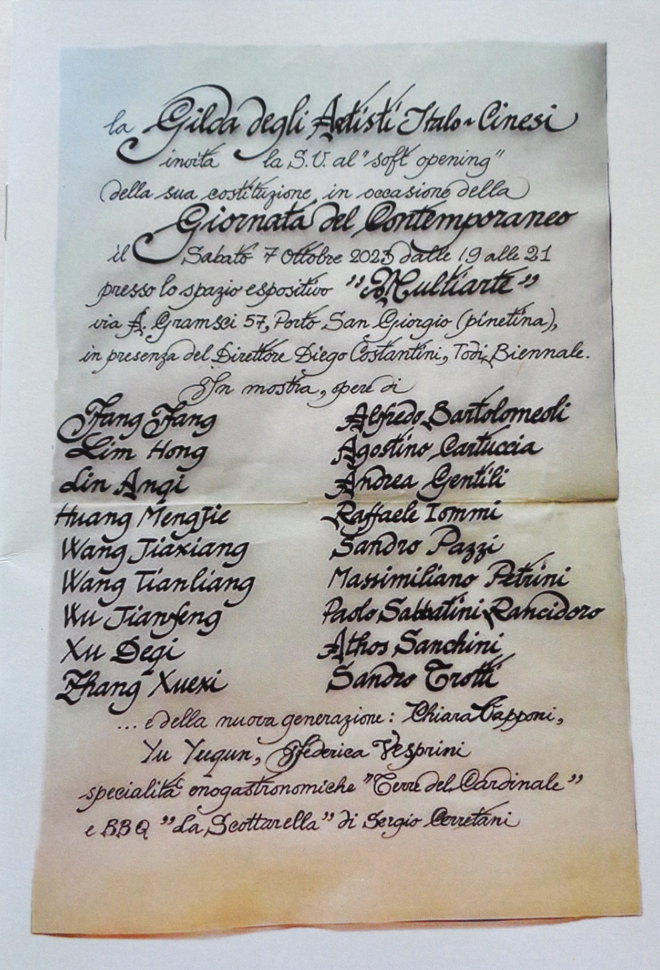 la Gilda degli Artisti Italo-Cinesi
invita la S.V. al "soft opening"
della sua costituzione, in occasione della
Giornata del Contemporaneo
il Sabato 7 Ottobre 2023 dalle 19 alle 21
presso lo spazio espositivo "Multiarte"
via A. Gramsci 57, Porto San Giorgio (pinetina),
in presenza del Direttore Diego Costantini, Todi Biennale.
In mostra, opere di
Fang Fang Alfredo Bartolomeoli
Lim Hong Agostino Cartuccia
Lin Anqi Andrea Gentili
Huang Mengjie Raffaele Iommi
Wang Jiaxiang Sandro Pazzi
Wang Tianliang Massimiliano Petrini
Wu Jianfeng Paolo Sabbatini Rancidoro
Xu Deqi Athos Sanchini
Zhang Xuexi Sandro Trotti
... e della nuova generazione: Chiara Capponi,
Yu Yuqun, Federica Vesprini
specialità enogastronomiche "Terre del Cardinale"
e BBQ "La Scottarella" di Sergio Corretani